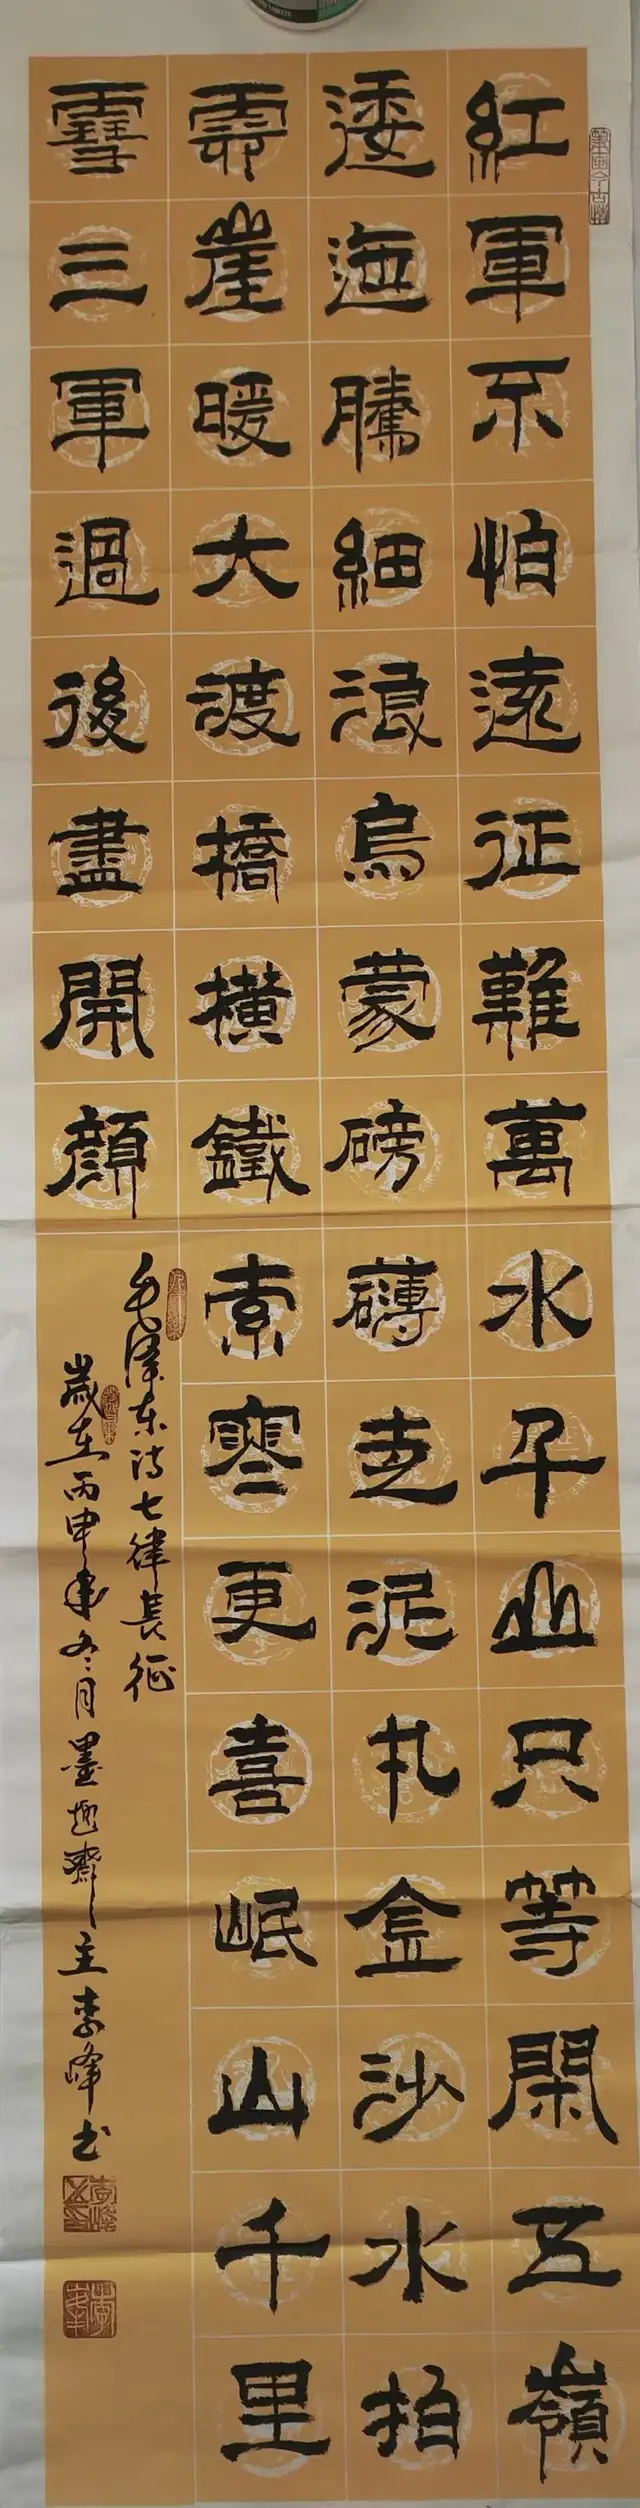 紅軍不怕遠征難萬水千山只等閑五嶺
逶迤騰細浪烏蒙磅礴走泥丸金沙水拍
雲崖暖大渡橋橫鐵索寒更喜岷山千里
雪三軍過後盡開顏
毛泽东诗七律長征
歲在丙申年冬月墨趣齋主李峰书